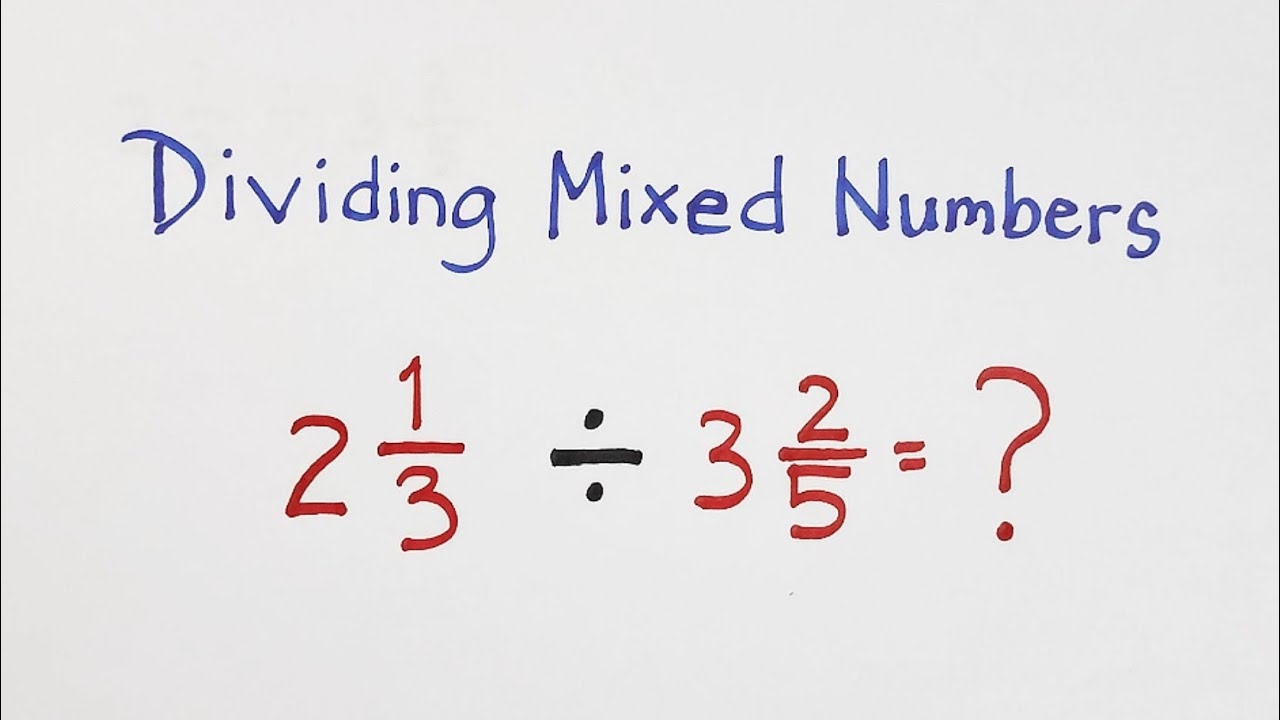 Dividing Mixed Numbers
2 1/3 ÷ 3 2/5 = ?